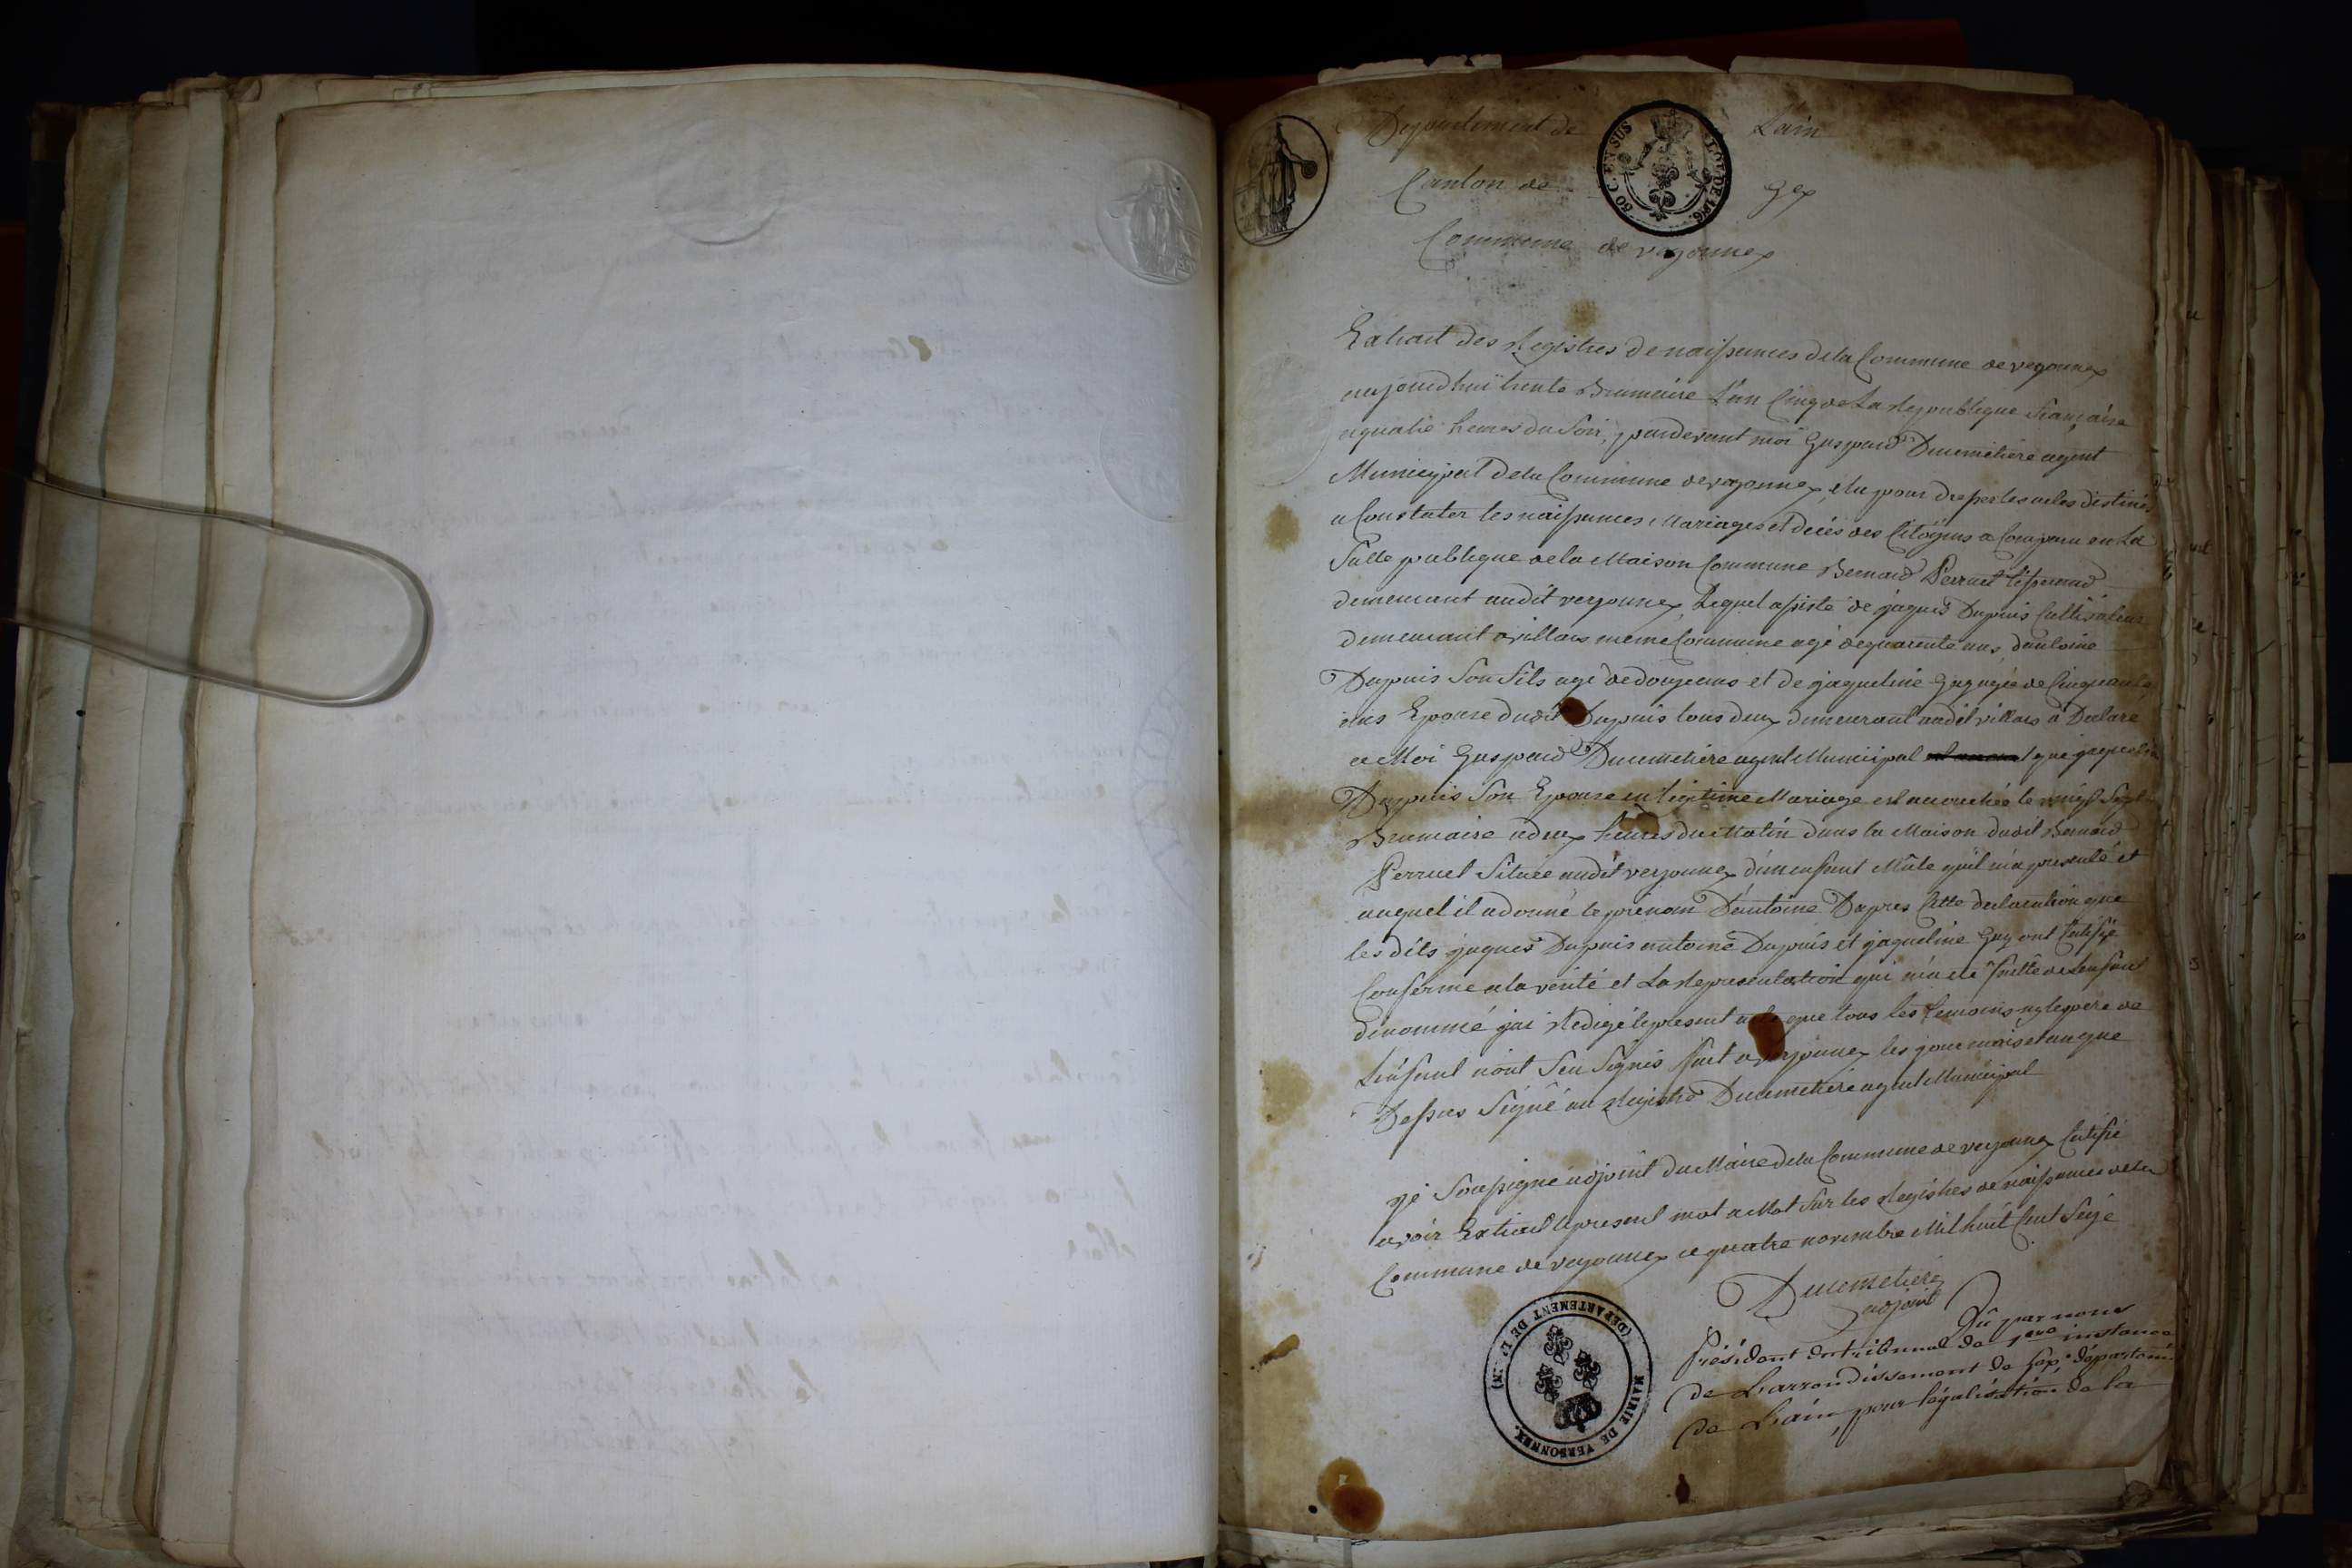 Departement de Lain
50 C. EN SUS
LOI DE 1816.
Canton de gex
Commune de vezonnex
Extrait des Registres de naissances de la Commune de vezonnex
aujourdhui trente Brumaire l'an Cinq de La Republique française
a quatre heures du Soir, pardevant moi Gaspard Ducimetiere agent
Municipal de la Commune de vezonnex elu pour dresser les actes destinés
a Constater les naissances Mariages et decés des Citoÿens a Comparu en La
Salle publique de la Maison Commune Bernard Perruet
demeurant audit verzonnex Lequel assisté de jaques Dupuis Cultivateur
demeurant a villars meme Commune agé de quarante ans, dantoine
Dupuis Son fils agé de douze ans et de jaqueline Guy agée de Cinquante
ans Epouse dudit Dupuis tous deux demeurant audit villars a Declaré
a Moi Gaspard Ducimetiere agent Municipal que
Dupuis Son Epouse en légitime Mariage est accouchée le vingt Sept
Brumaire a deux heures du Matin dans la Maison dudit Bernard
Perruet Située audit verzonnex d'un enfant Mâle qu'il m'a presenté et
auquel il a donné le prénom D'antoine D'apres Cette declaration que
les dits jaques Dupuis antoine Dupuis et jaqueline Guy ont Certifié
Conforme a la vérité et La Representation qui m'a eté faitte de Lenfant
dénommé jai Redigé le present acte que tous les temoins ny le pere de
Lenfant n'ont Seu Signés fait a verzonnex les jour mois et an que
Dessus Signé au Registre Ducimetiere agent Municipal
je Soussigné adjoint du Maire de la Commune de vezonnex Certifie
avoir Extrait le present mot a Mot Sur les Registres de naissances de la
Commune de vezonnex ce quatre novembre Mil huit Cent Seize
Ducimetiere
adjoint
MAIRIE DE VERSONNEX.
(DÉPARTEMENT DE L'AIN)
Vû par nous
Président du tribunal de 1ere instance
de L'arrondissement de Gex, départemt.
de L'ain, pour légalisation de la